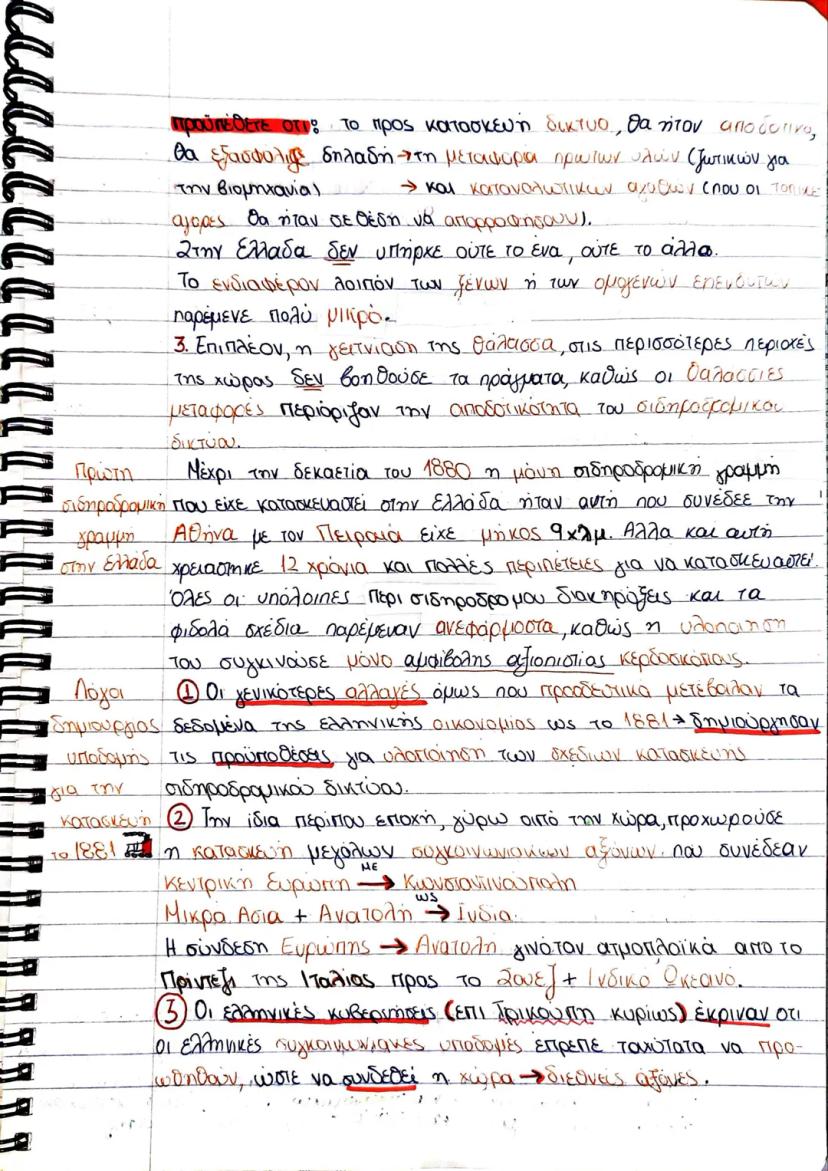 προϋπέθετε ότι: το προς κατασκευή δίκτυο, θα ήταν αποδοτικό,
θα εξασφάλιζε δηλαδή → τη μεταφορά πρώτων υλών (ζωτικών για
την βιομηχανία) → και καταναλωτικών αγαθών (που οι τοπικές
αγορές θα ήταν σε θέση να απορροφήσουν).
Στην Ελλάδα δεν υπήρχε ούτε το ένα, ούτε το άλλο.
Το ενδιαφέρον λοιπόν των ξένων ή των ομογενών επενδυτών
παρέμενε πολύ μικρό.
3. Επιπλέον, η γειτνίαση της θάλασσα, στις περισσότερες περιοχές
της χώρας δεν βοηθούσε τα πράγματα, καθώς οι θαλάσσιες
μεταφορές περιόριζαν την αποδοτικότητα του σιδηροδρομικού
δικτύου.
Πρώτη
σιδηροδρομική
γραμμή
στην Ελλάδα
Μέχρι την δεκαετία του 1880 η μόνη σιδηροδρομική γραμμή
που είχε κατασκευαστεί στην Ελλάδα ήταν αυτή που συνέδεε την
Αθήνα με τον Πειραιά είχε μήκος 9χλμ. Αλλα και αυτή
χρειάστηκε 12 χρόνια και πολλές περιπέτειες για να κατασκευαστεί.
Όλες οι υπόλοιπες περί σιδηροδρόμου διακηρύξεις και τα
φιλόδοξα σχέδια παρέμεναν ανεφάρμοστα, καθώς η υλοποίηση
του συγκινούσε μόνο αμφιβόλης αξιοπιστίας κερδοσκόπους.
Λόγοι
δημιουργίας
υποδομής
για την
κατασκευή
το 1881
① Οι γενικότερες αλλαγές όμως που προοδευτικά μετέβαλαν τα
δεδομένα της ελληνικής οικονομίας ως το 1881 → δημιούργησαν
τις προϋποθέσεις για υλοποίηση των σχεδίων κατασκευής
σιδηροδρομικού δικτύου.
② Την ίδια περίπου εποχή, γύρω από την χώρα, προχωρούσε
η κατασκευή μεγάλων συγκοινωνιακών αξόνων που συνέδεαν
Κεντρική Ευρώπη με → Κωνσταντινούπολη
Μικρά Ασία + Ανατολή ως → Ινδία.
Η σύνδεση Ευρώπης → Ανατολή γινόταν ατμοπλοϊκά από το
Πρίντεζι της Ιταλίας προς το Σουέζ + Ινδικό Ωκεανό.
③ Οι ελληνικές κυβερνήσεις (επί Τρικούπη κυρίως) έκριναν οτι
οι ελληνικές συγκοινωνιακές υποδομές έπρεπε ταχύτατα να προ-
ωθηθούν, ώστε να συνδεθεί η χώρα → διεθνείς άξονες.